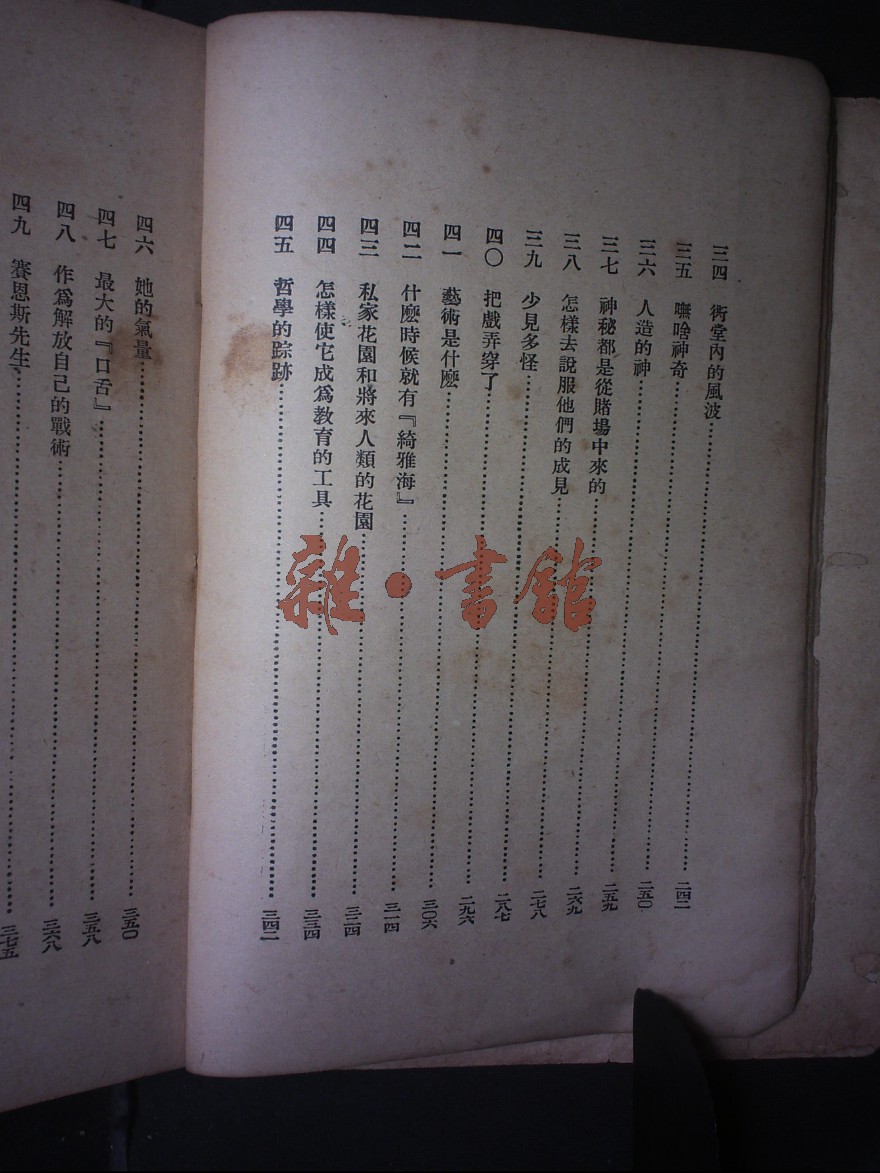 三四 衖堂內的風波……二四二
三五 嘸啥神奇……二五〇
三六 人造的神……二五九
三七 神秘都是從賭場中來的……二六九
三八 怎樣去說服他們的成見……二七八
三九 少見多怪……二八七
四〇 把戲弄穿了……二九六
四一 藝術是什麽……三〇六
四二 什麽時候就有『綺雅海』……三一四
四三 私家花園和將來人類的花園……三二四
四四 怎樣使它成爲教育的工具……三三四
四五 哲學的踪跡……三四二
四六 她的氣量……三五〇
四七 最大的『口舌』……三五八
四八 作爲解放自己的戰術……三六八
四九 賽恩斯先生……三七五
雜·書館